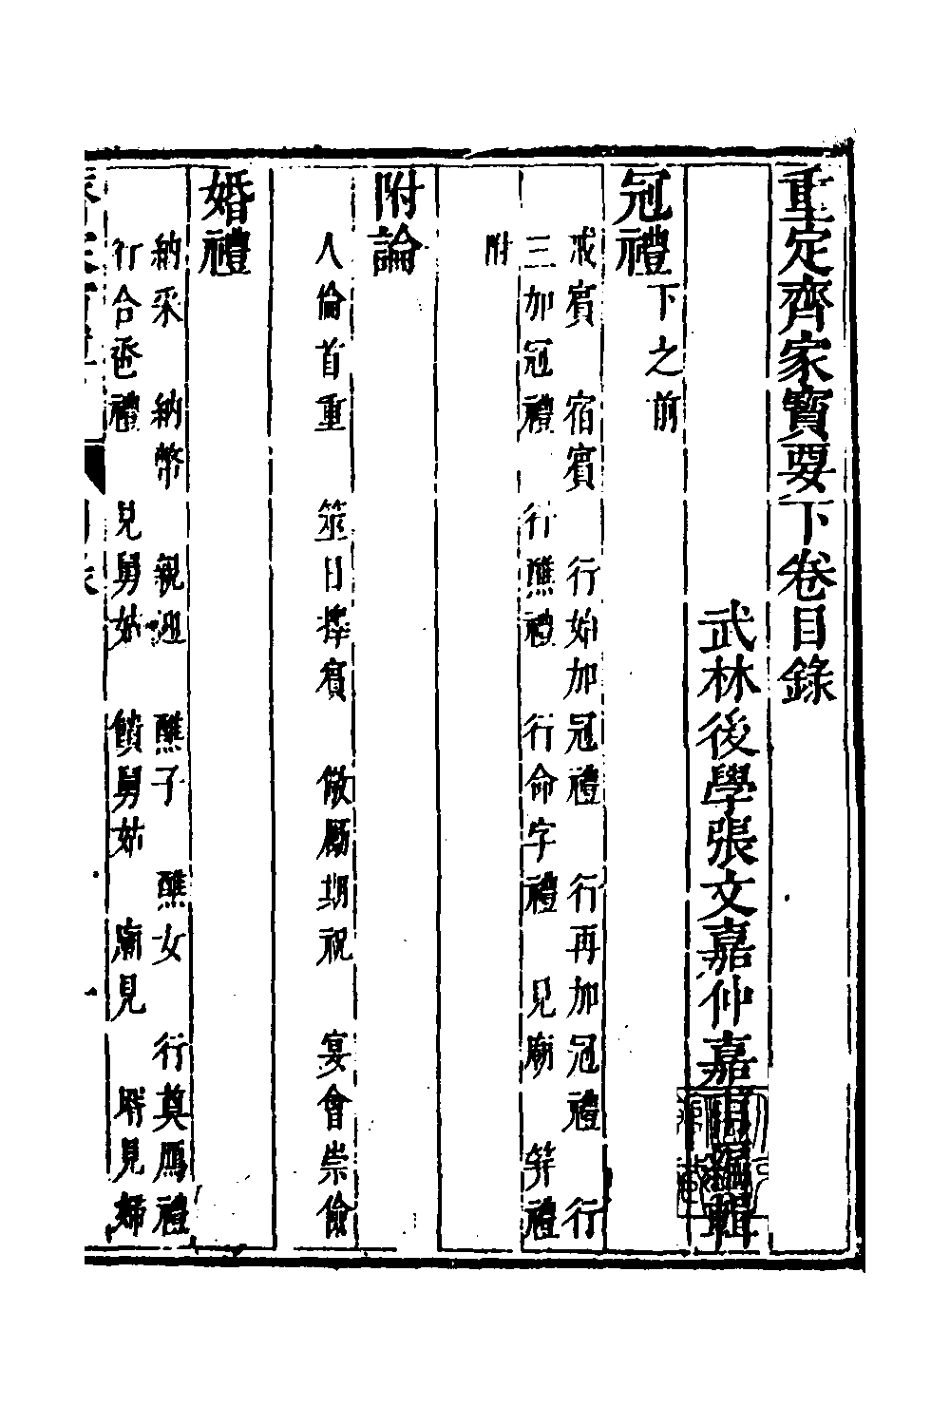 重定齊家寶要下卷目錄
武林後學張文嘉仲嘉甫編輯
冠禮下之前
戒賓　宿賓　行始加冠禮　行再加冠禮　行
三加冠禮　行醮禮　行命字禮　見廟　筓禮
附
附論
人倫首重　筮日擇賓　儆厲期祝　宴會崇儉
婚禮
納采　納幣　親迎　醮子　醮女　行奠鴈禮
行合巹禮　見舅姑　饋舅姑　廟見　壻見婦